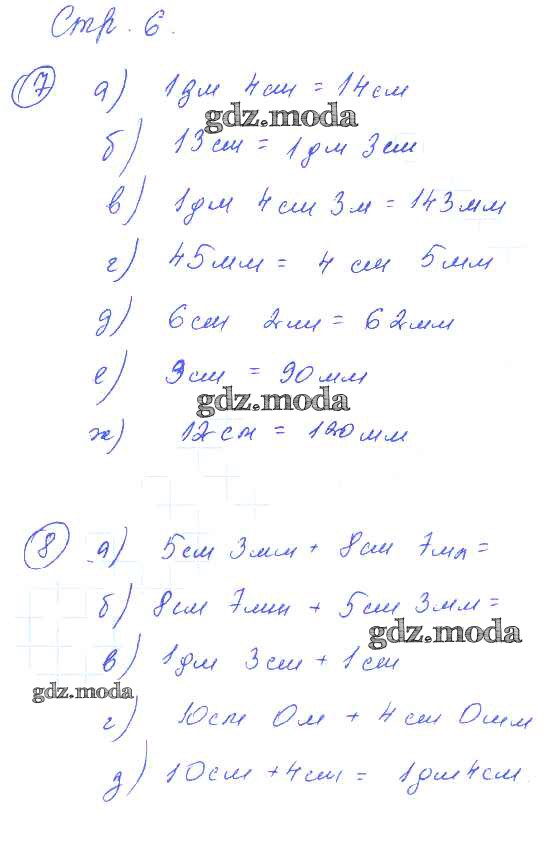 Стр. 6.
7 а) 1дм 4см = 14см
gdz.moda
б) 13см = 1дм 3см
в) 1дм 4см 3м = 143мм
г) 45мм = 4 см 5мм
д) 6см 2мм = 62мм
е) 9см = 90мм
gdz.moda
ж) 12см = 120мм
8 а) 5см 3мм + 8см 7мм =
б) 8см 7мм + 5см 3мм =
gdz.moda
в) 1дм 3см + 1см
gdz.moda
г) 10см 0м + 4см 0мм
д) 10см + 4см = 1дм 4см.